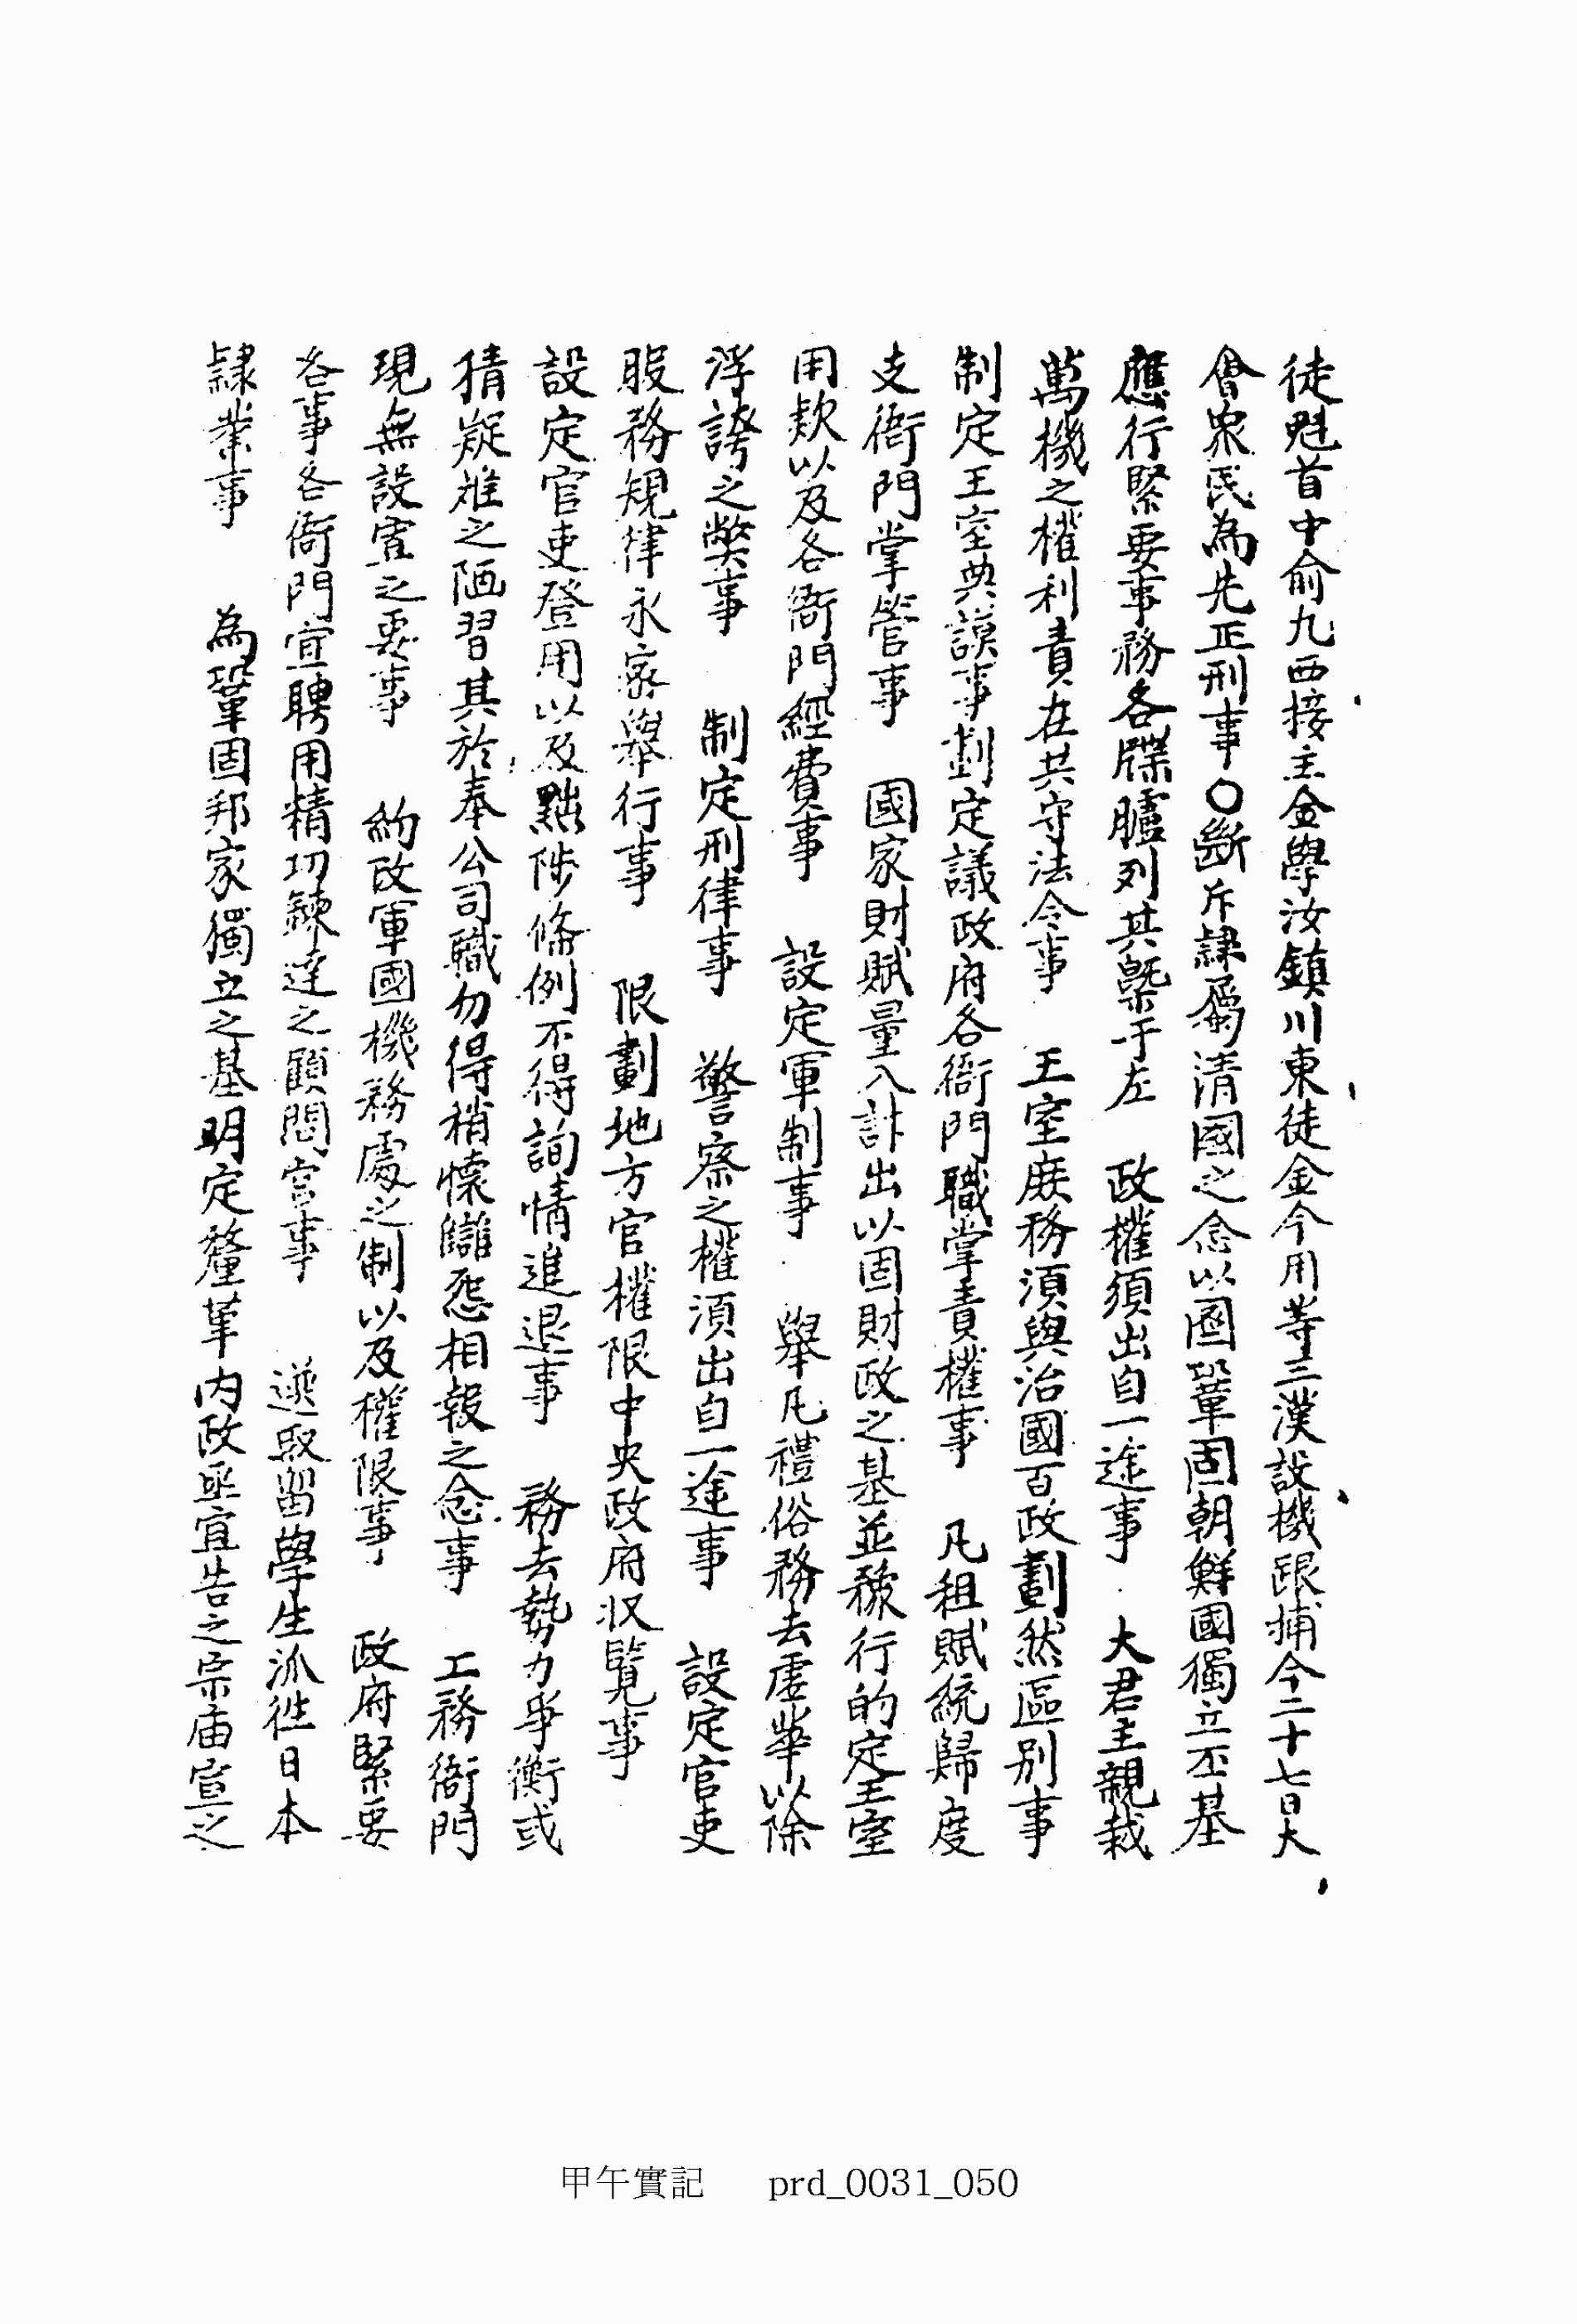 徒魁首中俞九西接主金學汝鎮川東徒金今用等三漢設機跟捕今二十七日大
會衆民為先正刑事○斷斥隷屬清國之念以圖鞏固朝鮮國獨立丕基
應行緊要事務各牒臚列其槩于左 政權須出自一途事 大君主親裁
萬機之權利責在共守法令事 王室庶務須與治國百政劃然區別事
制定王室典謨事劃定議政府各衙門職掌責權事 凡租賦統歸度
支衙門掌管事 國家財賦量入計出以固財政之基並豫行的定王室
用款以及各衙門經費事 設定軍制事 舉凡禮俗務去虛華以除
浮誇之弊事 制定刑律事 警察之權須出自一途事 設定官吏
服務規律永密舉行事 限劃地方官權限中央政府収覽事
設定官吏登用以及黜陟條例不得詢情進退事 務去勢力爭衡或
猜疑雄之陋習其於奉公司職勿得稍懷讎怨相報之念事 工務衙門
現無設寘之要事 約改軍國機務處之制以及權限事 政府緊要
各事各衙門宣聘用精切鍊達之顧問官事 遴取留學生派徃日本
隷業事 為鞏固邦家獨立之基明定釐革内政亟宜告之宗庙宣之
甲午實記 prd_0031_050